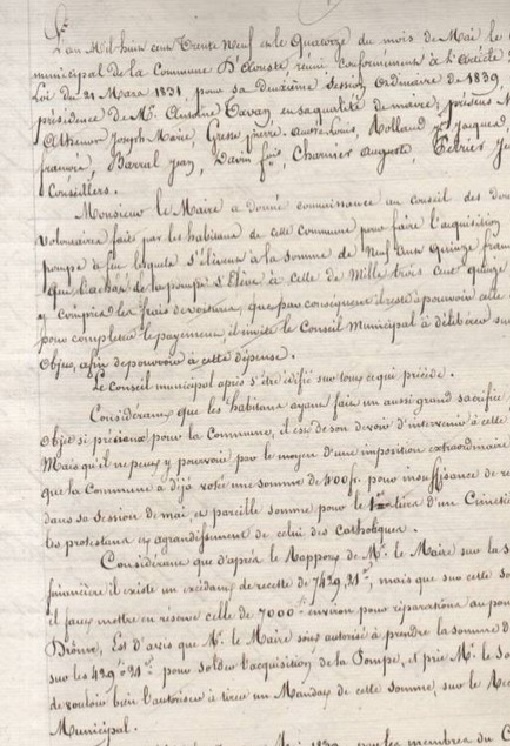 L'an Mil huit cent Trente Neuf et le Quatorze du mois de Mai le
municipal de la Commune D'Aouste réuni Conformément à L'Article
Loi du 21 Mars 1831. pour sa deuxième Session Ordinaire de 1839,
présidence de Mr. Antoine Davan, en sa qualité de maire; présens
Athenor Joseph Marie, Gresse pierre, Louis, Rolland Jacques,
françois, Barral Jean, David fois, Charnier Auguste,
Conseillers.
Monsieur le Maire a donné connaissance au conseil des
volontaires faits par les habitans de cette Commune pour faire l'acquisition
pompe à feu laquelle s'élèvent à la somme de Neuf Cent quinze
que l'achat de la pompe s'Elève à celle de Mille trois Cent quinze
y compris les frais de voiture, que par conséquent il reste à pourvoir celle
pour completter le payement il invite le Conseil Municipal à délibérer sur
Objet, afin de pourvoir à cette dépense.
Le Conseil municipal après s'être édifié sur tout ce qui précède.
Considérant que les habitans ayant fait un aussi grand sacrifice
Objet si précieux pour la Commune, il est de son devoir d'intervenir à cette
Mais qu'il ne peut y pourvoir par le moyen d'une imposition extraordinaire
que la Commune a déjà votée une somme de 400 f. pour insuffisance de
dans sa Session de mai, et pareille somme pour le d'un
les protestans et agrandissement de celui des Catholiques.
Considérant que d'après le Rapport de Mr. le Maire sur la
financière il existe un excédant de recette de 7429,21 c, mais que sur cette
il faut mettre en réserve celle de 7000 f environ pour réparations au
Drôme, Est d'avis que Mr. le Maire soit autorisé à prendre la somme
sur les 429 f 21 c pour solder l'acquisition de la Pompe, et prie Mr. le
de vouloir bien l'autoriser à tirer un Mandat de cette somme, sur le
Municipal.